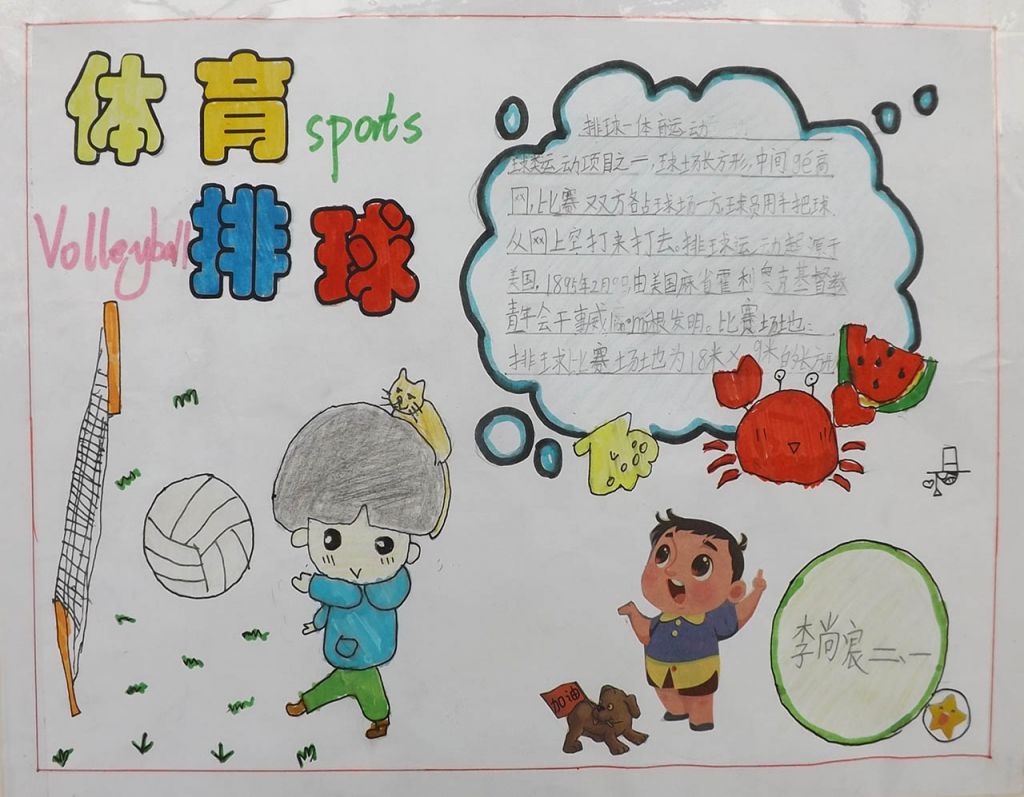 体育 sports
Volleyball 排球
排球-体育运动
球类运动项目之一,球场长方形,中间gé高
网,比赛双方各占球场一方,球员用手把球
从网上空打来打去。排球运动起源于
美国,1895年2月 由美国麻省霍利奥克基督教
青年会干事威 根发明。比赛场地:
排球比赛场地为18米×9米的长方形
加油
李尚宸 二、一